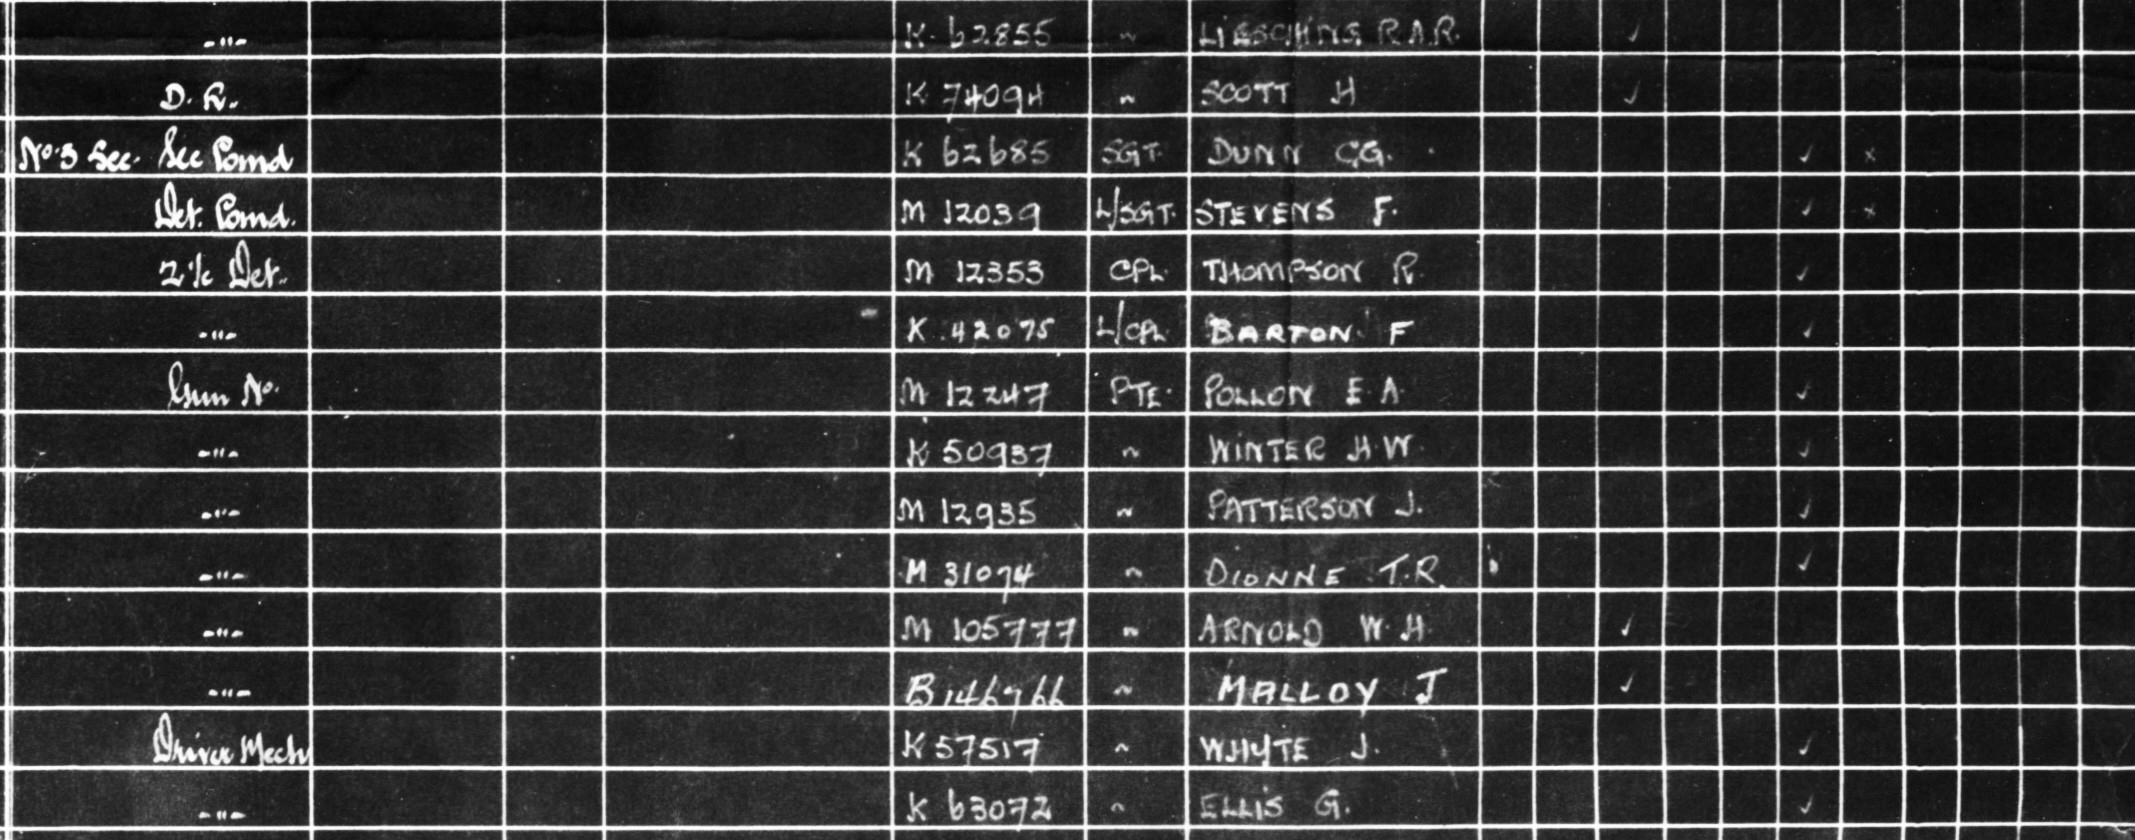 -"- K 62855 " LIESCHING R.A.R. ✓
D. R. K 74094 " SCOTT H ✓
No. 3 Sec. Sec Comd K 62685 SGT. DUNN C.G. ✓ x
Det. Comd. M 12039 L/SGT. STEVENS F. ✓ x
2 i/c Det. M 12353 CPL. THOMPSON R. ✓
-"- K 42075 L/CPL BARTON F ✓
Gun No. M 12247 PTE. POLLON E.A. ✓
-"- K 50937 " WINTER H.W. ✓
-"- M 12935 " PATTERSON J. ✓
-"- M 31074 " DIONNE T.R. ✓
-"- M 105777 " ARNOLD W.H. ✓
-"- B 146766 " MALLOY J ✓
Driver Mech K 57517 " WHYTE J. ✓
-"- K 63072 " ELLIS G. ✓